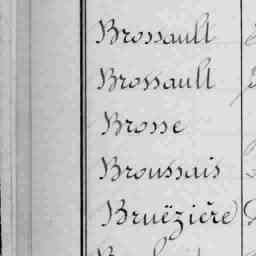 Brossault
Brossault
Brosse
Broussais
Bruëzière